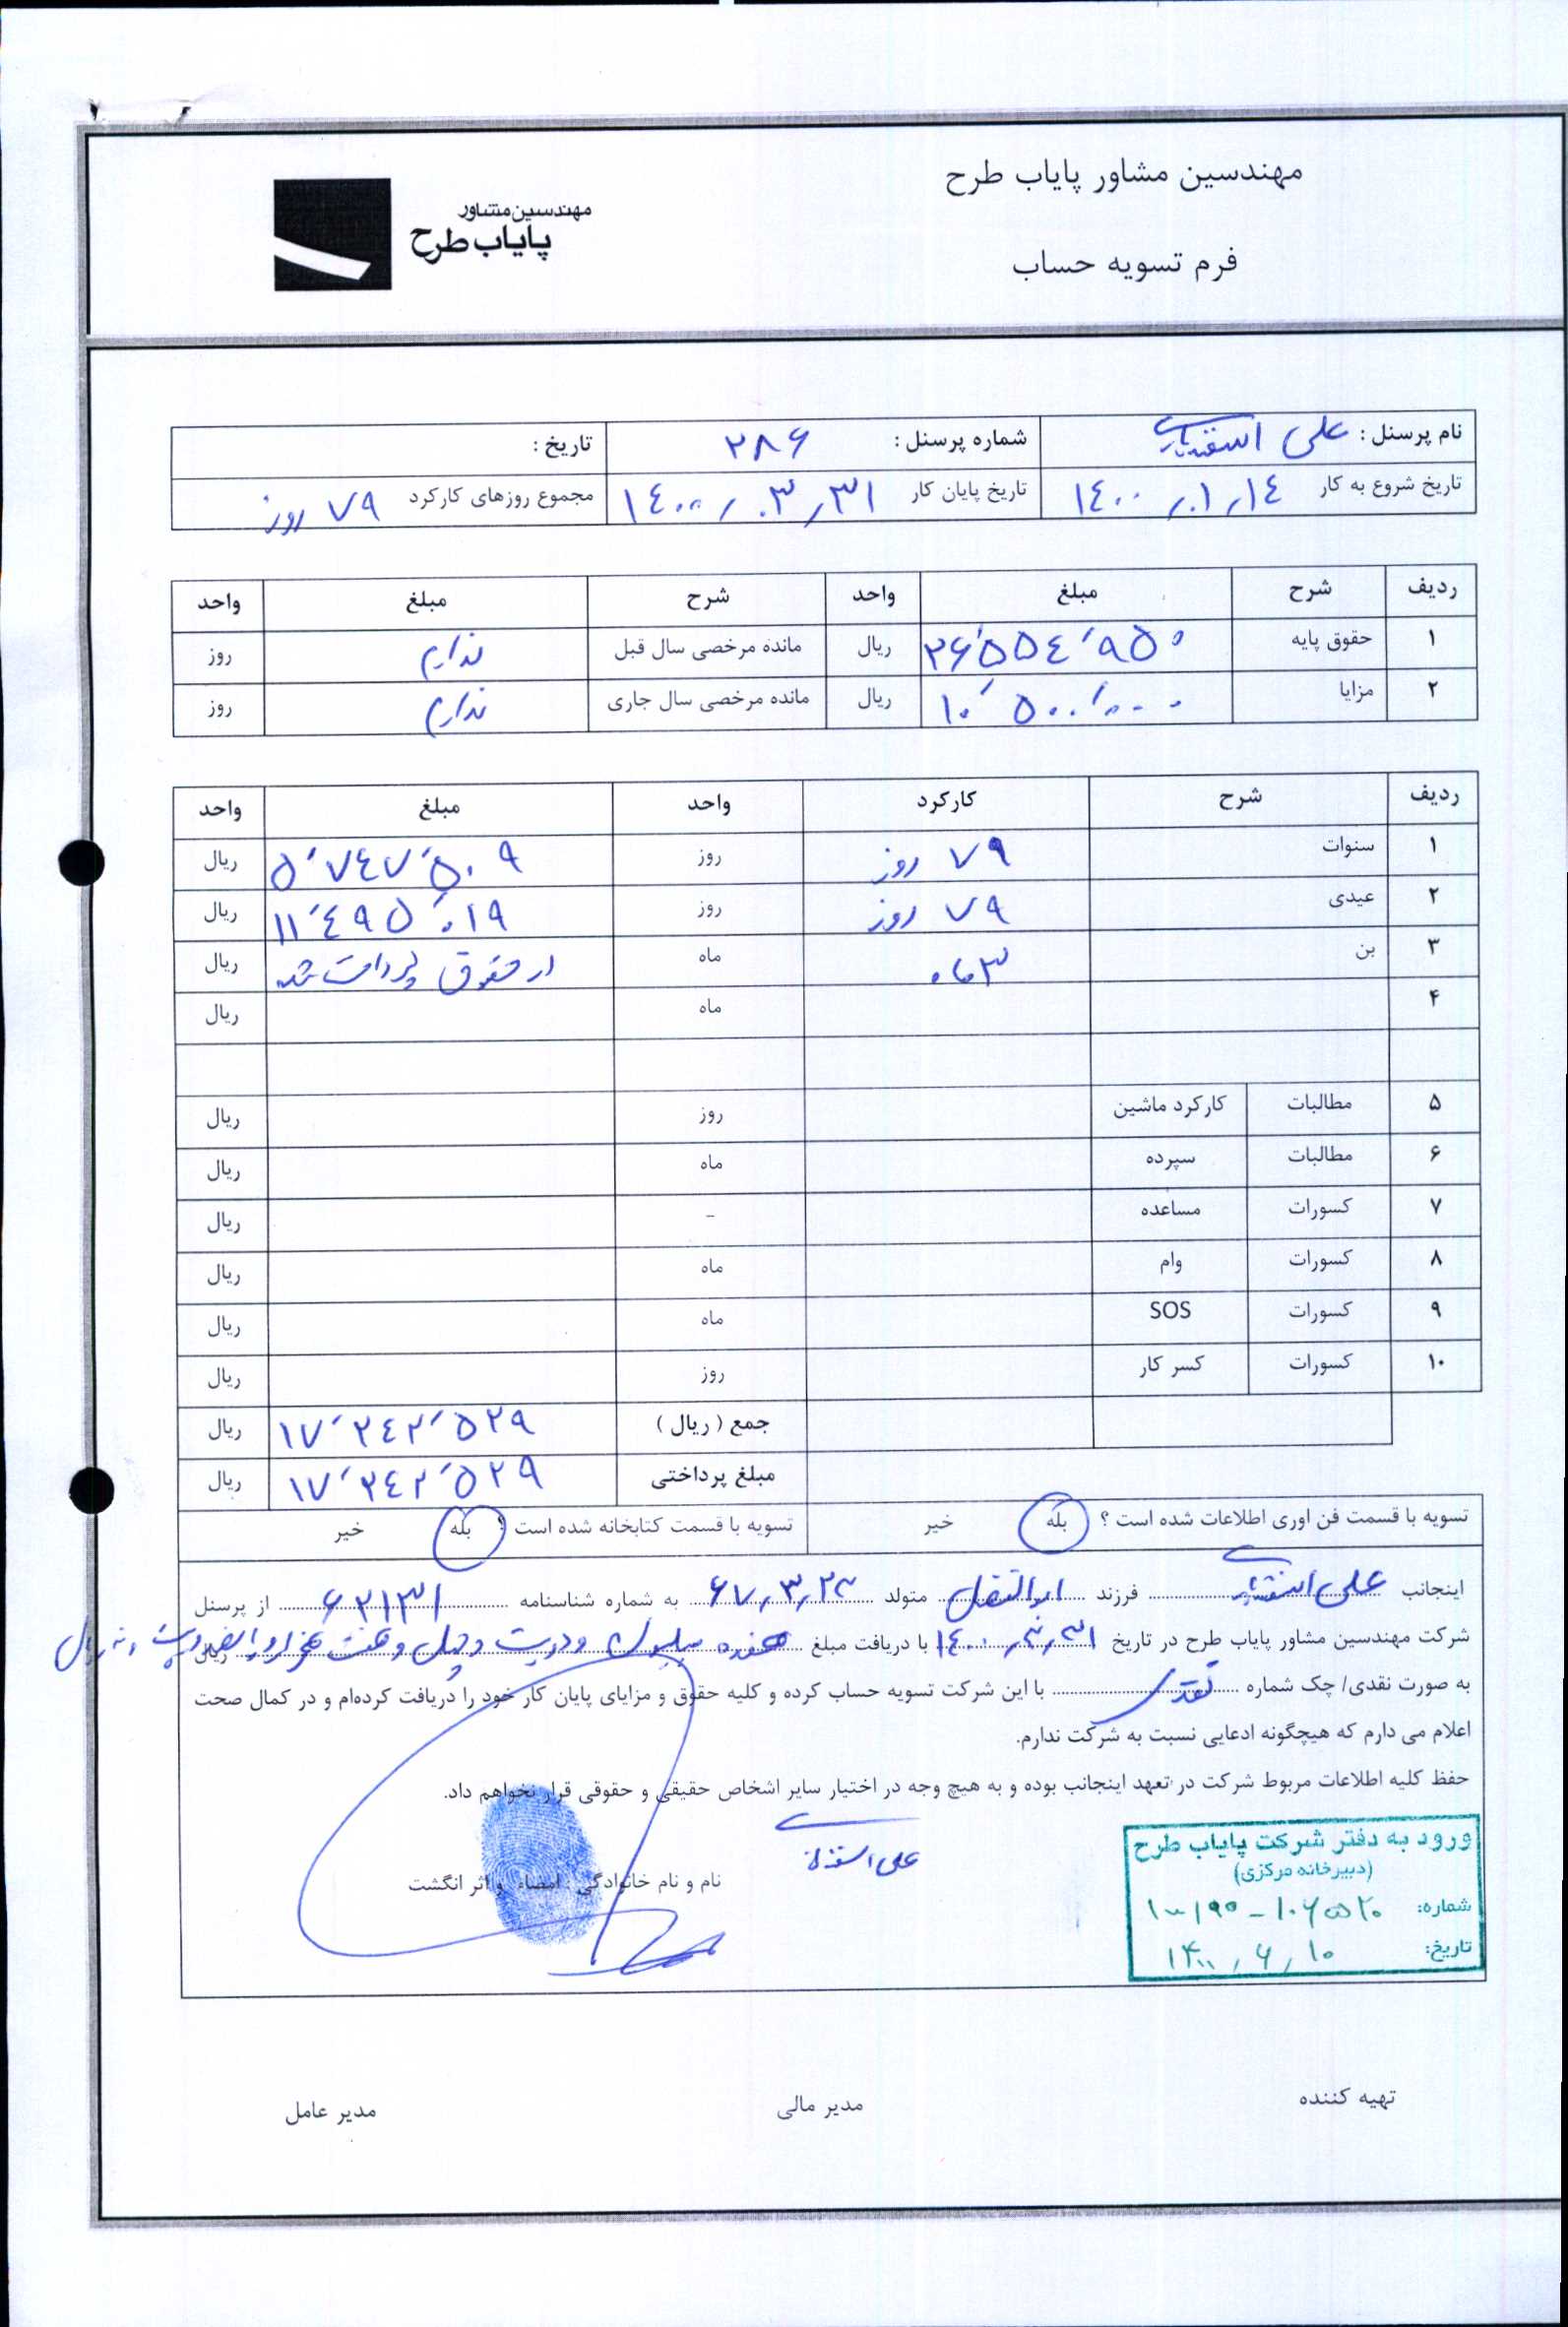 مهندسین مشاور پایاب طرح
مهندسین مشاور
پایاب طرح
فرم تسویه حساب
نام پرسنل : علی شماره پرسنل : ۲۸۶ تاریخ :
تاریخ شروع به کار ۱۴۰۰/۰۱/۱۴ تاریخ پایان کار ۱۴۰۰/۰۳/۳۱ مجموع روزهای کارکرد ۷۹ روز
ردیف شرح مبلغ واحد شرح مبلغ واحد
۱ حقوق پایه ۲۶٬۵۵۴٬۹۵۰ ریال مانده مرخصی سال قبل ندارم روز
۲ مزایا ۱۰٬۵۰۰٬۰۰۰ ریال مانده مرخصی سال جاری ندارم روز
ردیف شرح کارکرد واحد مبلغ واحد
۱ سنوات ۷۹ روز روز ۵٬۷۴۷٬۵۰۹ ریال
۲ عیدی ۷۹ روز روز ۱۱٬۴۹۵٬۰۱۹ ریال
۳ بن ۳ ماه ماه در حقوق پرداخت شد ریال
۴ ماه ریال
۵ مطالبات کارکرد ماشین روز ریال
۶ مطالبات سپرده ماه ریال
۷ کسورات مساعده - ریال
۸ کسورات وام ماه ریال
۹ کسورات SOS ماه ریال
۱۰ کسورات کسر کار روز ریال
جمع ( ریال ) ۱۷٬۲۴۲٬۵۲۹ ریال
مبلغ پرداختی ۱۷٬۲۴۲٬۵۲۹ ریال
تسویه با قسمت فن اوری اطلاعات شده است ؟ بله خیر تسویه با قسمت کتابخانه شده است ؟ بله خیر
اینجانب علی فرزند ابوالفضل متولد ۶۷/۳/۲۳ به شماره شناسنامه ۶۲۱۳۱ از پرسنل
شرکت مهندسین مشاور پایاب طرح در تاریخ ۱۴۰۰/۳/۳۱ با دریافت مبلغ هفده میلیون و دویست و چهل و ریال
به صورت نقدی/ چک شماره نقدی با این شرکت تسویه حساب کرده و کلیه حقوق و مزایای پایان کار خود را دریافت کرده‌ام و در کمال صحت
اعلام می دارم که هیچگونه ادعایی نسبت به شرکت ندارم.
حفظ کلیه اطلاعات مربوط شرکت در تعهد اینجانب بوده و به هیچ وجه در اختیار سایر اشخاص حقیقی و حقوقی قرار نخواهم داد.
علی
نام و نام خانوادگی امضاء و اثر انگشت
ورود به دفتر شرکت پایاب طرح
(دبیرخانه مرکزی)
شماره:
تاریخ: ۱۴۰۰/۶/۱۰
تهیه کننده مدیر مالی مدیر عامل